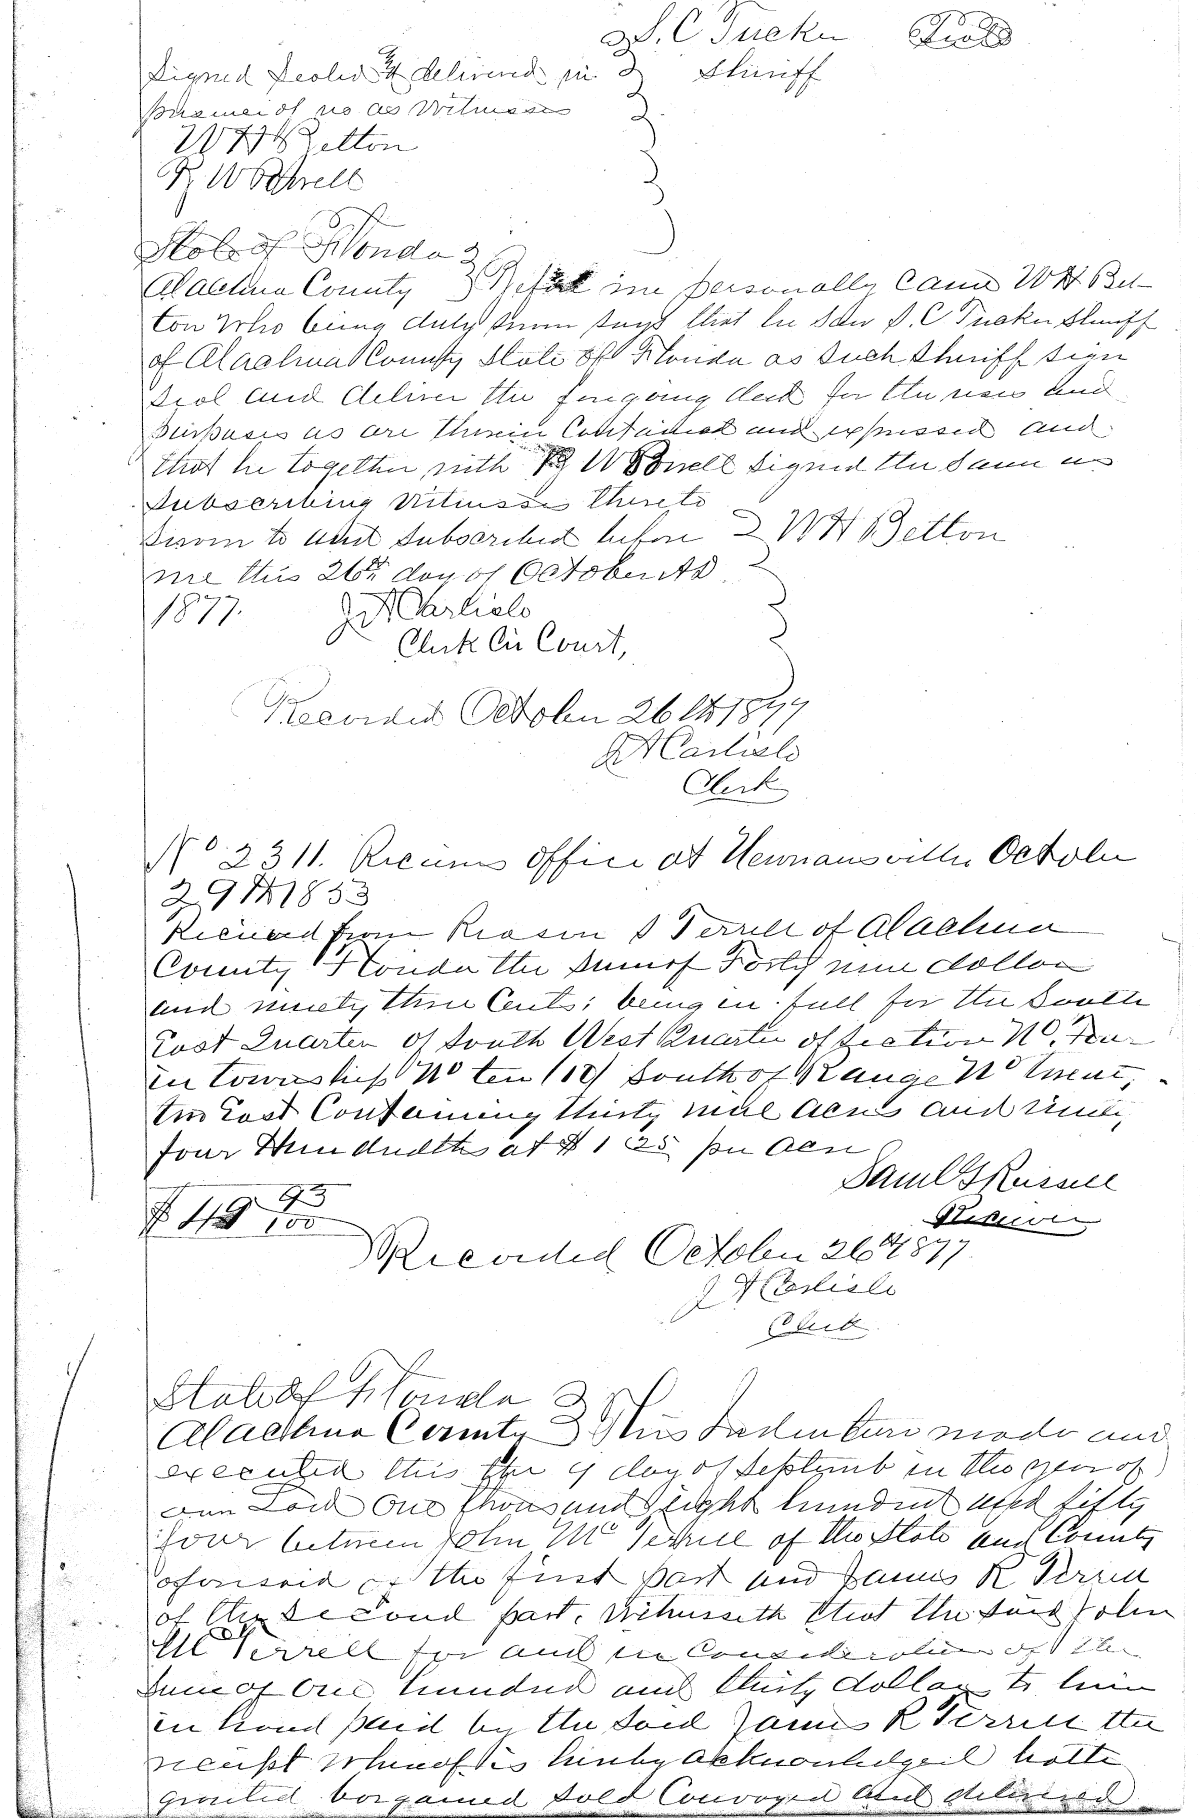 S. C Tucker Seal
Signed Sealed & delivered in Sheriff
presence of us as Witnesses
W H Belton
State of Florida
Alachua County Before me personally Came W H Bel-
ton Who being duly sworn says that he saw S. C Tucker Sheriff
of Alachua County State of Florida as such Sheriff sign
seal and deliver the foregoing deed for the uses and
purposes as are therein Contained and expressed and
that he together with signed the same as
subscribing Witnesses thereto
Sworn to and subscribed before W H Belton
me this 26th day of October AD
1877. J A Carlisle
Clerk Cir Court,
Recorded October 26th 1877
J A Carlisle
Clerk
No 2311. Receivers office at Newnansville October
29th 1853
Received from Reason S Terrell of Alachua
County Florida the sum of Forty nine dollars
and ninety three Cents; being in full for the South
East Quarter of South West Quarter of Section No. Ten
in township No ten (10) South of Range No twenty
two East Containing thirty nine acres and ninety
four Hundredths at $1 25 per acre
Saml S Russell
$49 93/100 Receiver
Recorded October 26th 1877
J A Carlisle
Clerk
State of Florida
Alachua County This Indenture made and
executed this the 9 day of Septemb in the year of
our Lord One thousand eight hundred and fifty
four between John Mc Terrell of the State and County
aforesaid of the first part and James R Terrell
of the second part. Witnesseth that the said John
Mc Terrell for and in Consideration of the
sum of One hundred and thirty dollars to him
in hand paid by the said James R Terrell the
receipt whereof is hereby acknowledged hath
granted bargained sold Conveyed and delivered